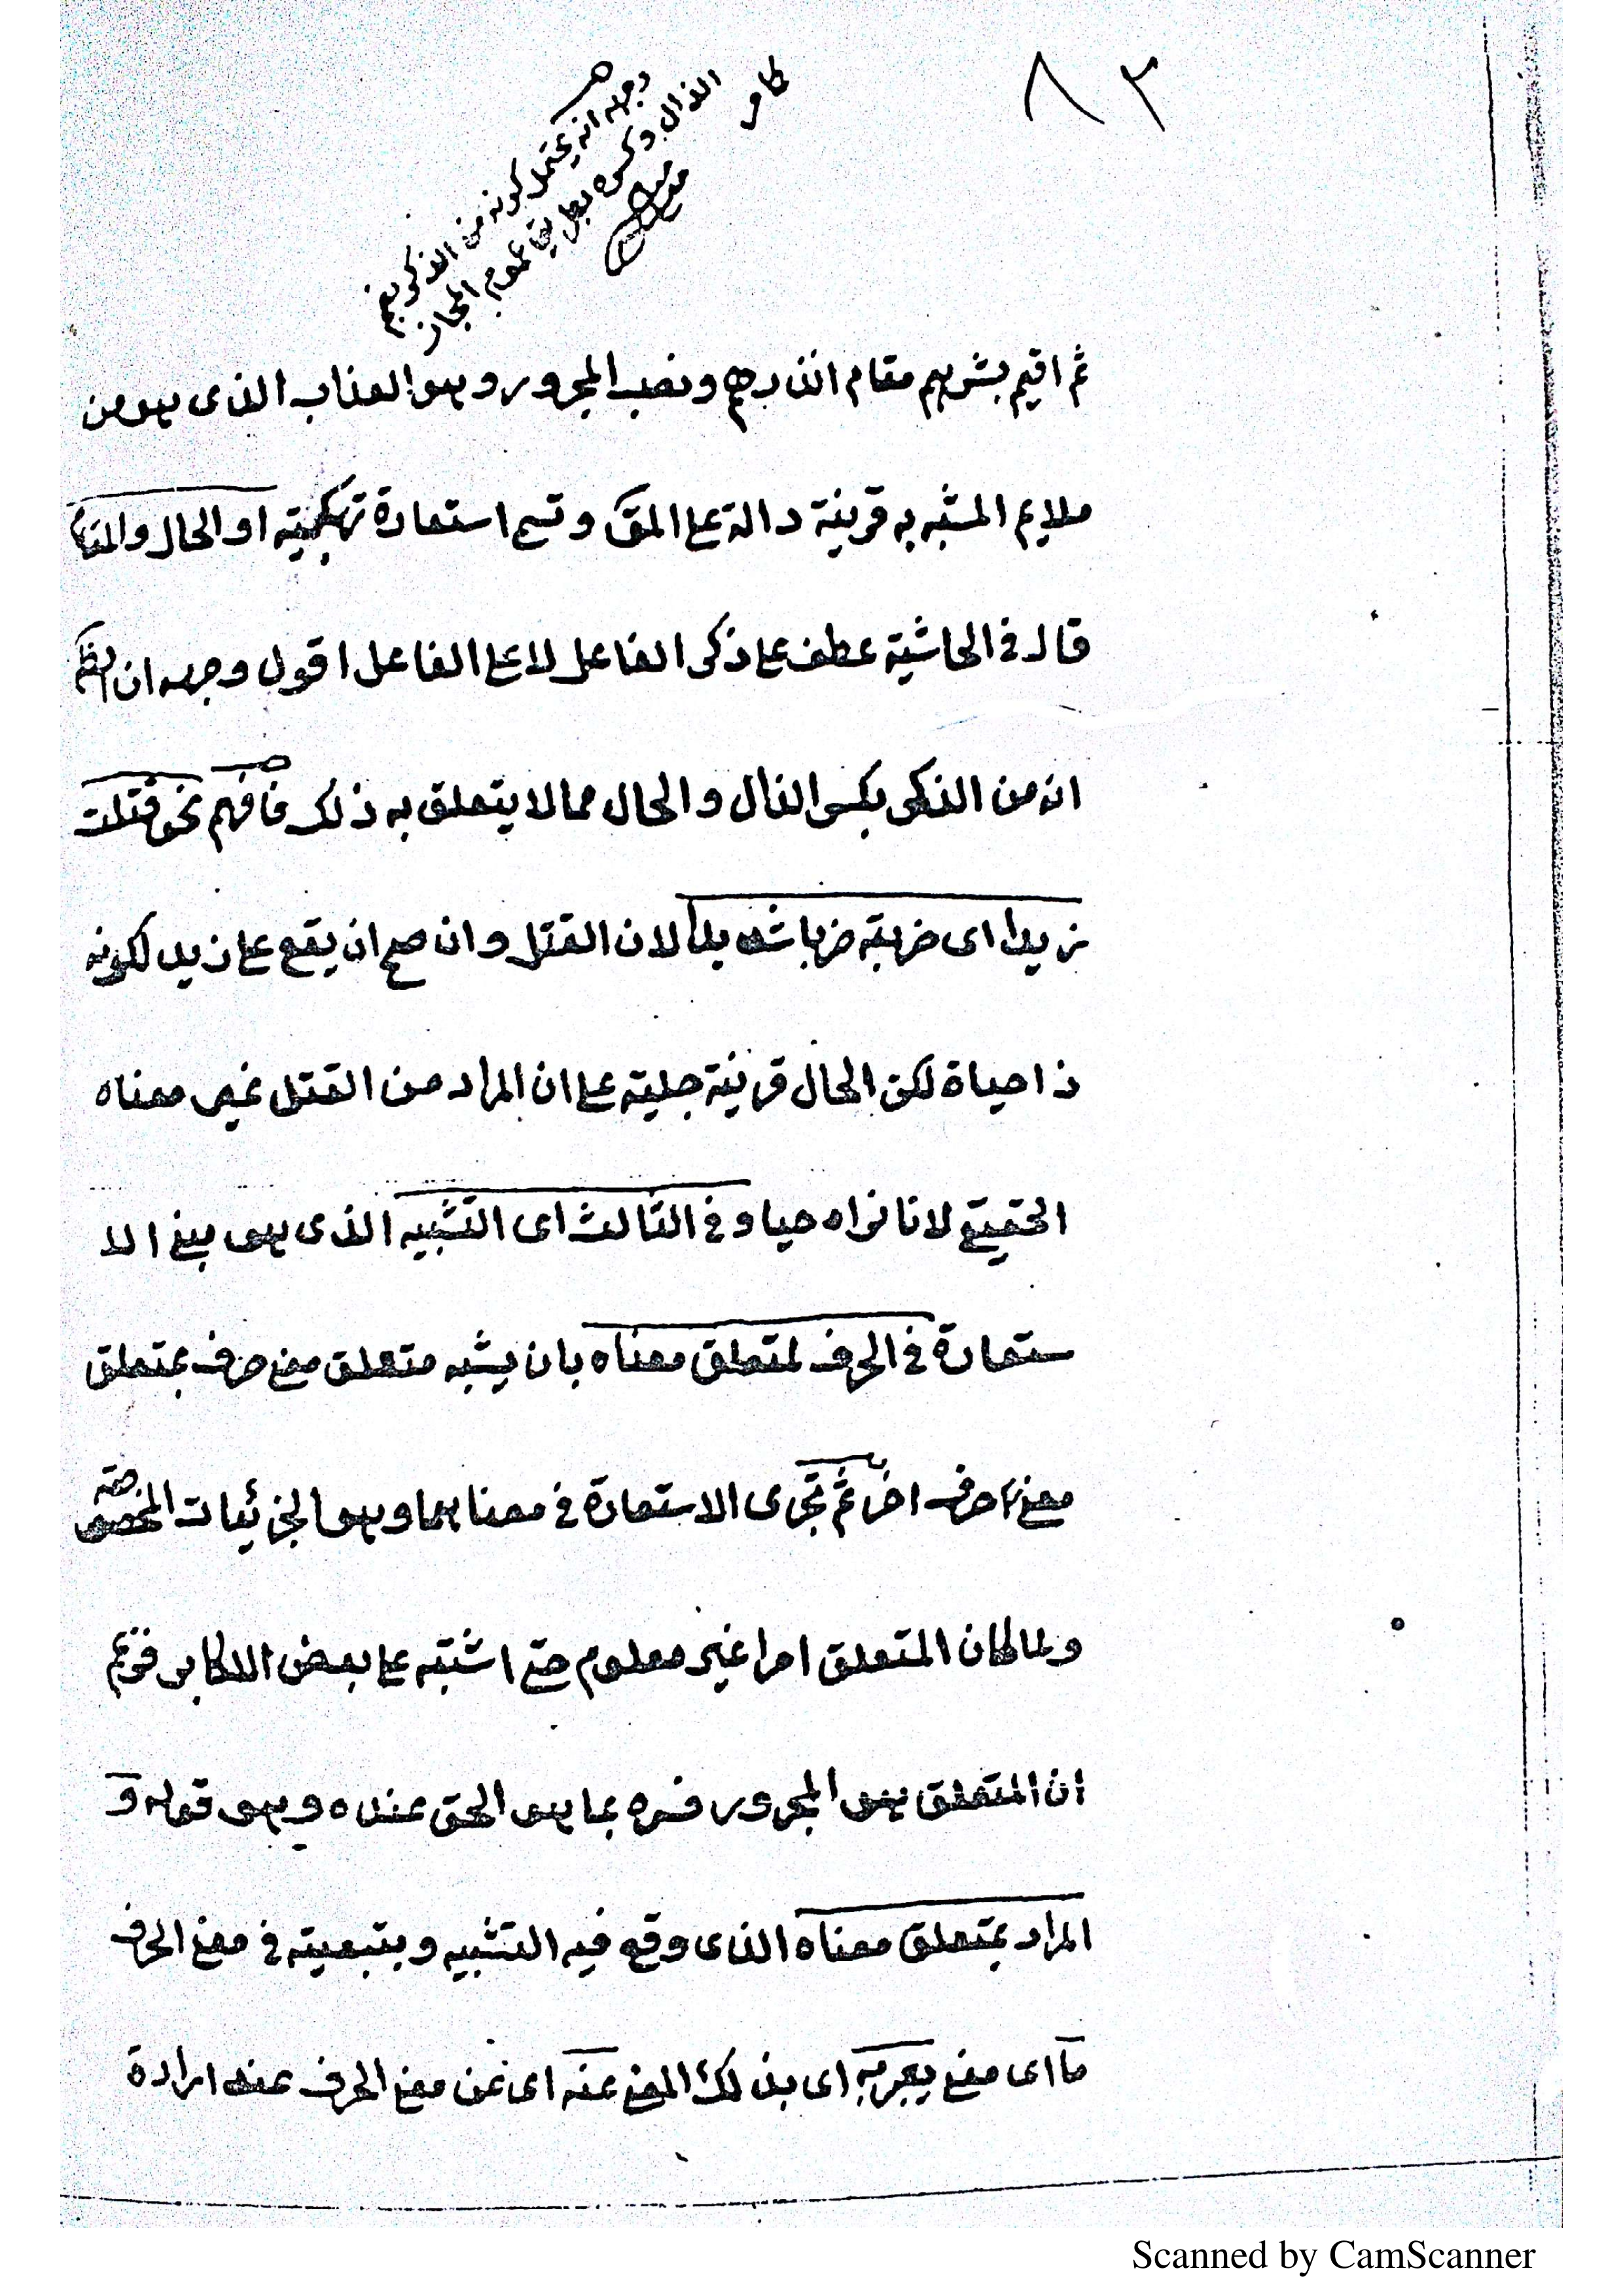 ٨٢
وجهه انه يحتمل كونه من الذكر بضم
الذال وكسره بطريق عموم المجاز
كا مر
ثم اقيم بشرهم مقام انذرهم ونصب المجرور وهو العذاب الذى هو من
ملايم المشبه به قرينة دالة على المق وتسم استعارة تهكمية او الحال والمقا
قال فى الحاشية عطف على ذكر الفاعل لا على الفاعل اقول وجهه ان
انه من الذكر بكسر الذال والحال مما لا يتعلق به ذلك فافهم نحو قتلت
زيدا اى ضربته ضربا شديدا لان القتل وان صح ان يقع على زيد لكونه
ذا حياة لكن الحال قرينة جلية على ان المراد من القتل غير معناه
الحقيقى لانا نراه حيا وفى الثالث اى التشبيه الذى هو مبنى الا
ستعارة فى الحرف لمتعلق معناه بان يشبه متعلق معنى حرف بمتعلق
معنى حرف اخر ثم تجرى الاستعارة فى معناهما وهو الجزئيات المخصوصة
ولما كان المتعلق امرا غير معلوم حتى اشتبه على بعض الاكابر فزعم
ان المتعلق هو المجرور فسره بما هو الحق عنده وهو قوله و
المراد بمتعلق معناه الذى وقع فيه التشبيه وبتبعيته فى معنى الحرف
ما اى معنى يعبر به اى بذلك المعنى عنه اى عن معنى الحرف عند ارادة
Scanned by CamScanner